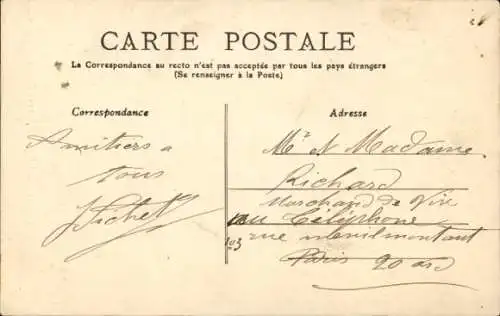 CARTE POSTALE
La Correspondance au recto n'est pas acceptée par tous les pays étrangers
(Se renseigner à la Poste)
Correspondance
Amitiers a
tous
Adresse
Mr et Madame
Richard
Marchand de Vin
au Téléphone
103 rue menilmontant
Paris 20 ard